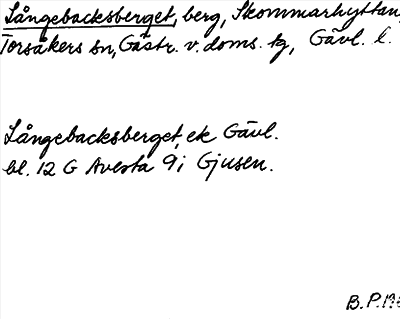 Långebacksberget, berg, Skommarhyttan,
Torsåkers sn, Gästr. v. doms. tg, Gävl. l.
Långebacksberget, ek Gävl.
bl. 12 G Avesta 9i Gjusen.
B.P.